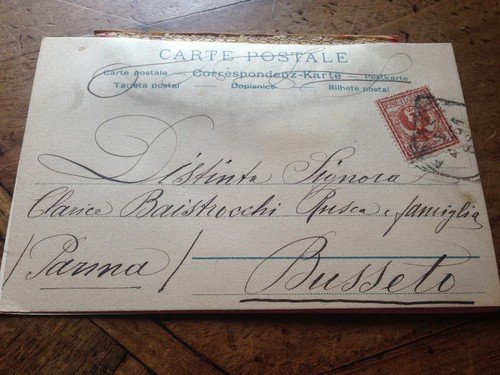 CARTE POSTALE
Carte postale — Correspondenz-Karte — Postkarte
Tarjeta postal — Dopisnice — Bilhete postal
Distinta Signora
Clarice Baistrocchi Rusca e famiglia
/ Parma / Busseto